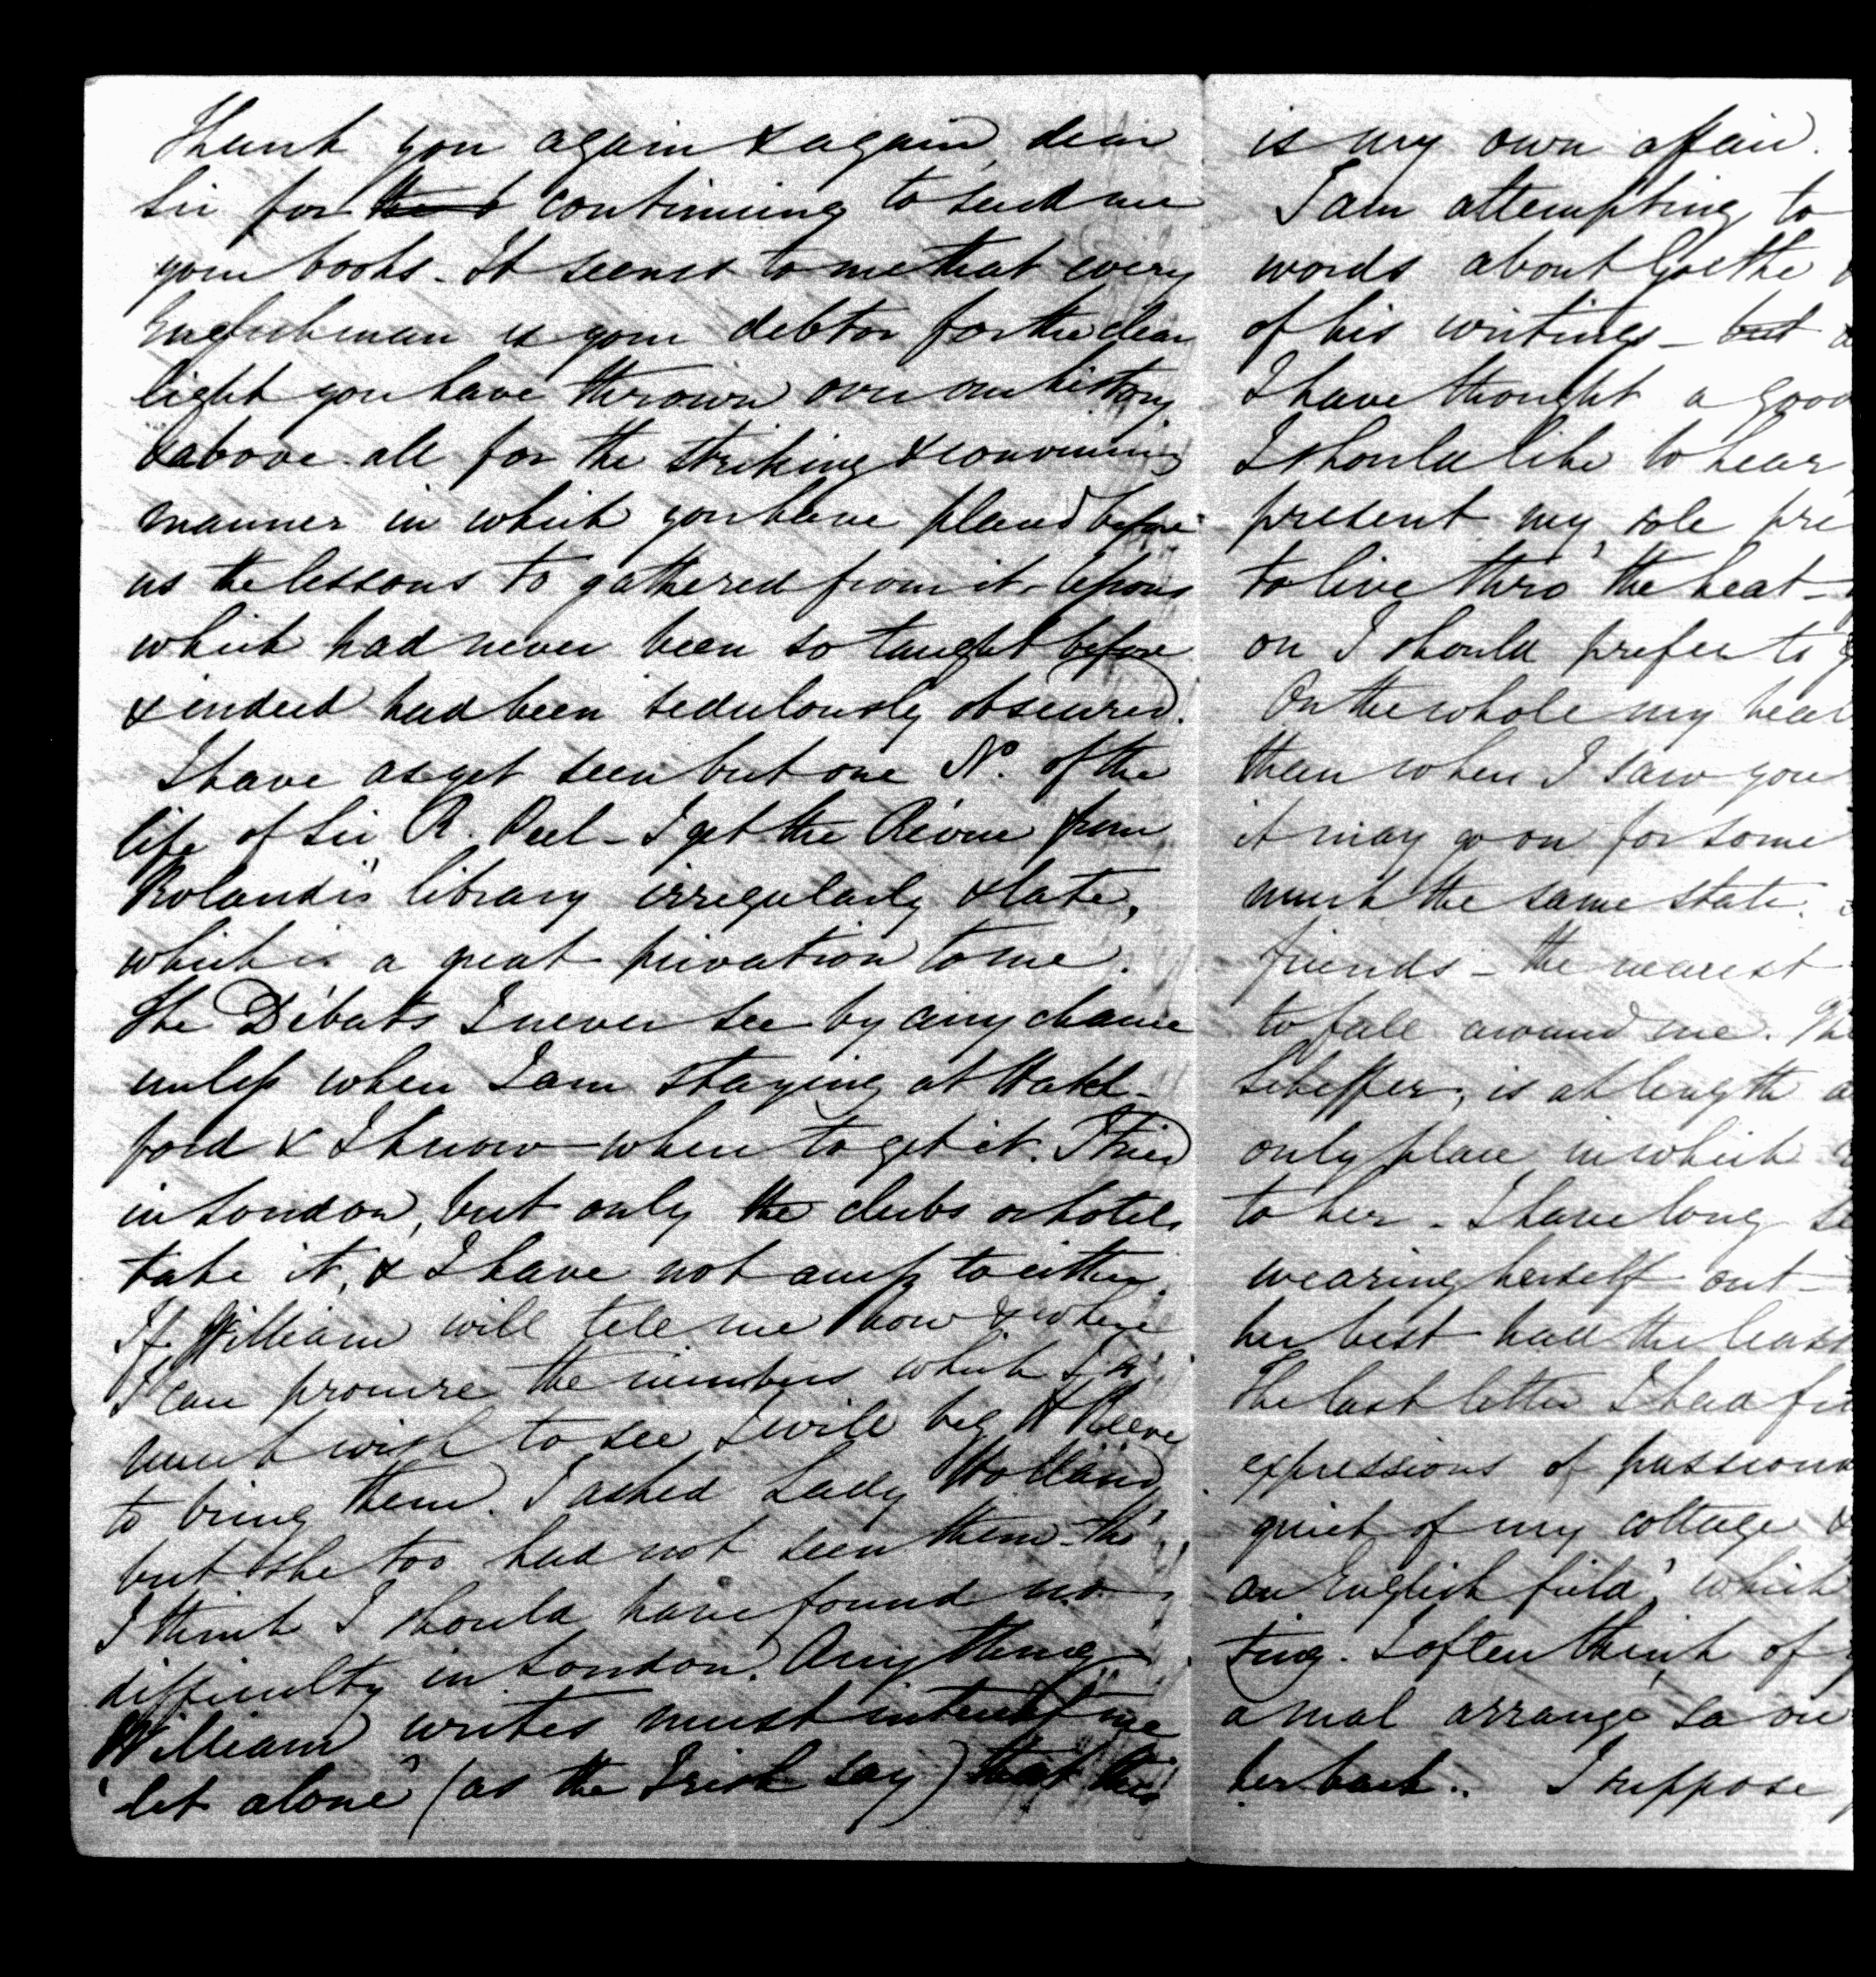 Thank you again & again, dear
Sir for continuing to send me
your books. It seems to me that every
Englishman is your debtor for the clear
light you have thrown over our history
& above all for the striking & convincing
manner in which you have placed before
us the lessons to gathered from it - lessons
which had never been so taught before
& indeed had been sedulously obscured.
I have as yet seen but one No. of the
life of Sir R. Peel - I get the Révue from
Rolandi's library irregularly & late,
which is a great privation to me.
The Débats I never see by any chance
unless when I am staying at Hatch-
ford & I know when to get it. I tried
in London, but only the clubs or hotels
take it, & I have not access to either.
If William will tell me how & where
I can procure the numbers which I so
much wish to see I will beg H Reeve
to bring them. I asked Lady Holland
but she too had not seen them - tho'
I think I should have found no
difficulty in London. Anything
William writes must interest me
'let alone' (as the Irish say) that this
is my own affair.
I am attempting to
words about Goethe
of his writings - but
I have thought a good
I should like to hear
present my sole pre
to live thro' the heat -
on I should prefer to
On the whole my heal
than when I saw you
it may go on for some
much the same state.
friends - the nearest
to fall around me. The
Scheffer, is at length
only place in which
to her - I have long
wearing herself out -
her best had the least
The last letter I had
expressions of passiona
quiet of my cottage &
an English field', which
ting. I often think of
a mal arrangé sa
her back. I suppose